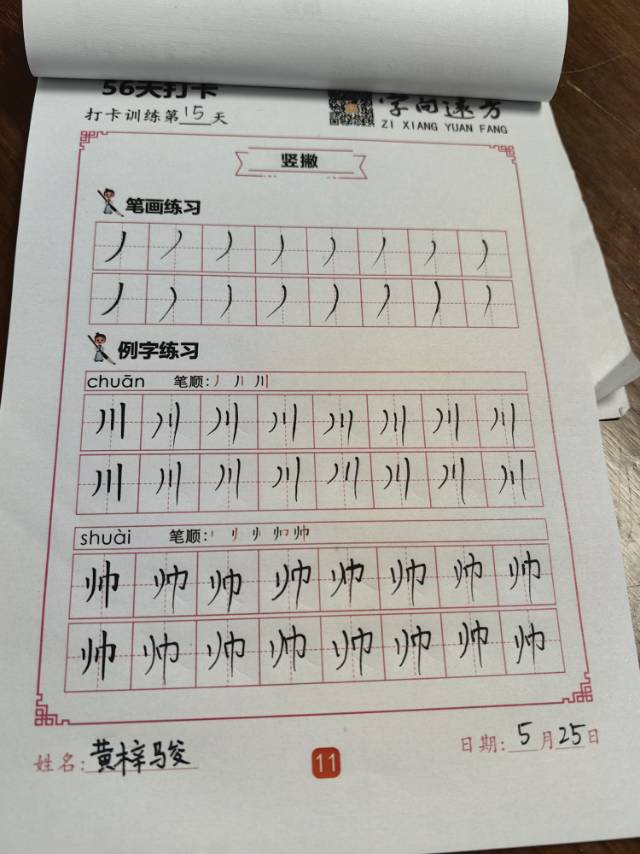 56天打卡
打卡训练第15天
字向远方
ZI XIANG YUAN FANG
竖撇
笔画练习
丿 丿 丿 丿 丿 丿 丿 丿
丿 丿 丿 丿 丿 丿 丿 丿
例字练习
chuān 笔顺: 丿 丿丨 川
川 川 川 川 川 川 川 川
川 川 川 川 川 川 川 川
shuài 笔顺:
帅 帅 帅 帅 帅 帅 帅 帅
帅 帅 帅 帅 帅 帅 帅 帅
姓名: 黄梓骏
11
日期: 5月25日